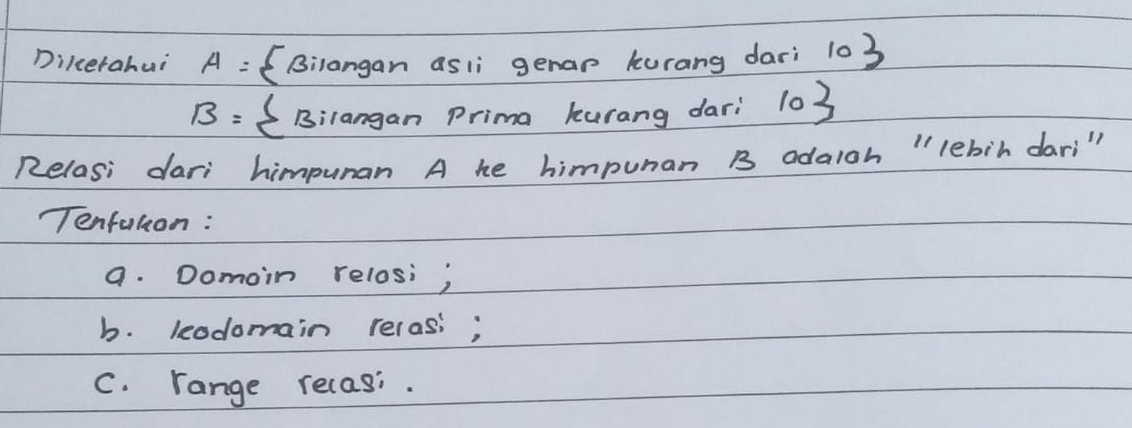 Diketahui A = {Bilangan asli genap kurang dari 10}
B = {Bilangan Prima kurang dari 10}
Relasi dari himpunan A ke himpunan B adalah "lebih dari"
Tentukan :
a. Domain relasi ;
b. kodomain relasi ;
c. range relasi .